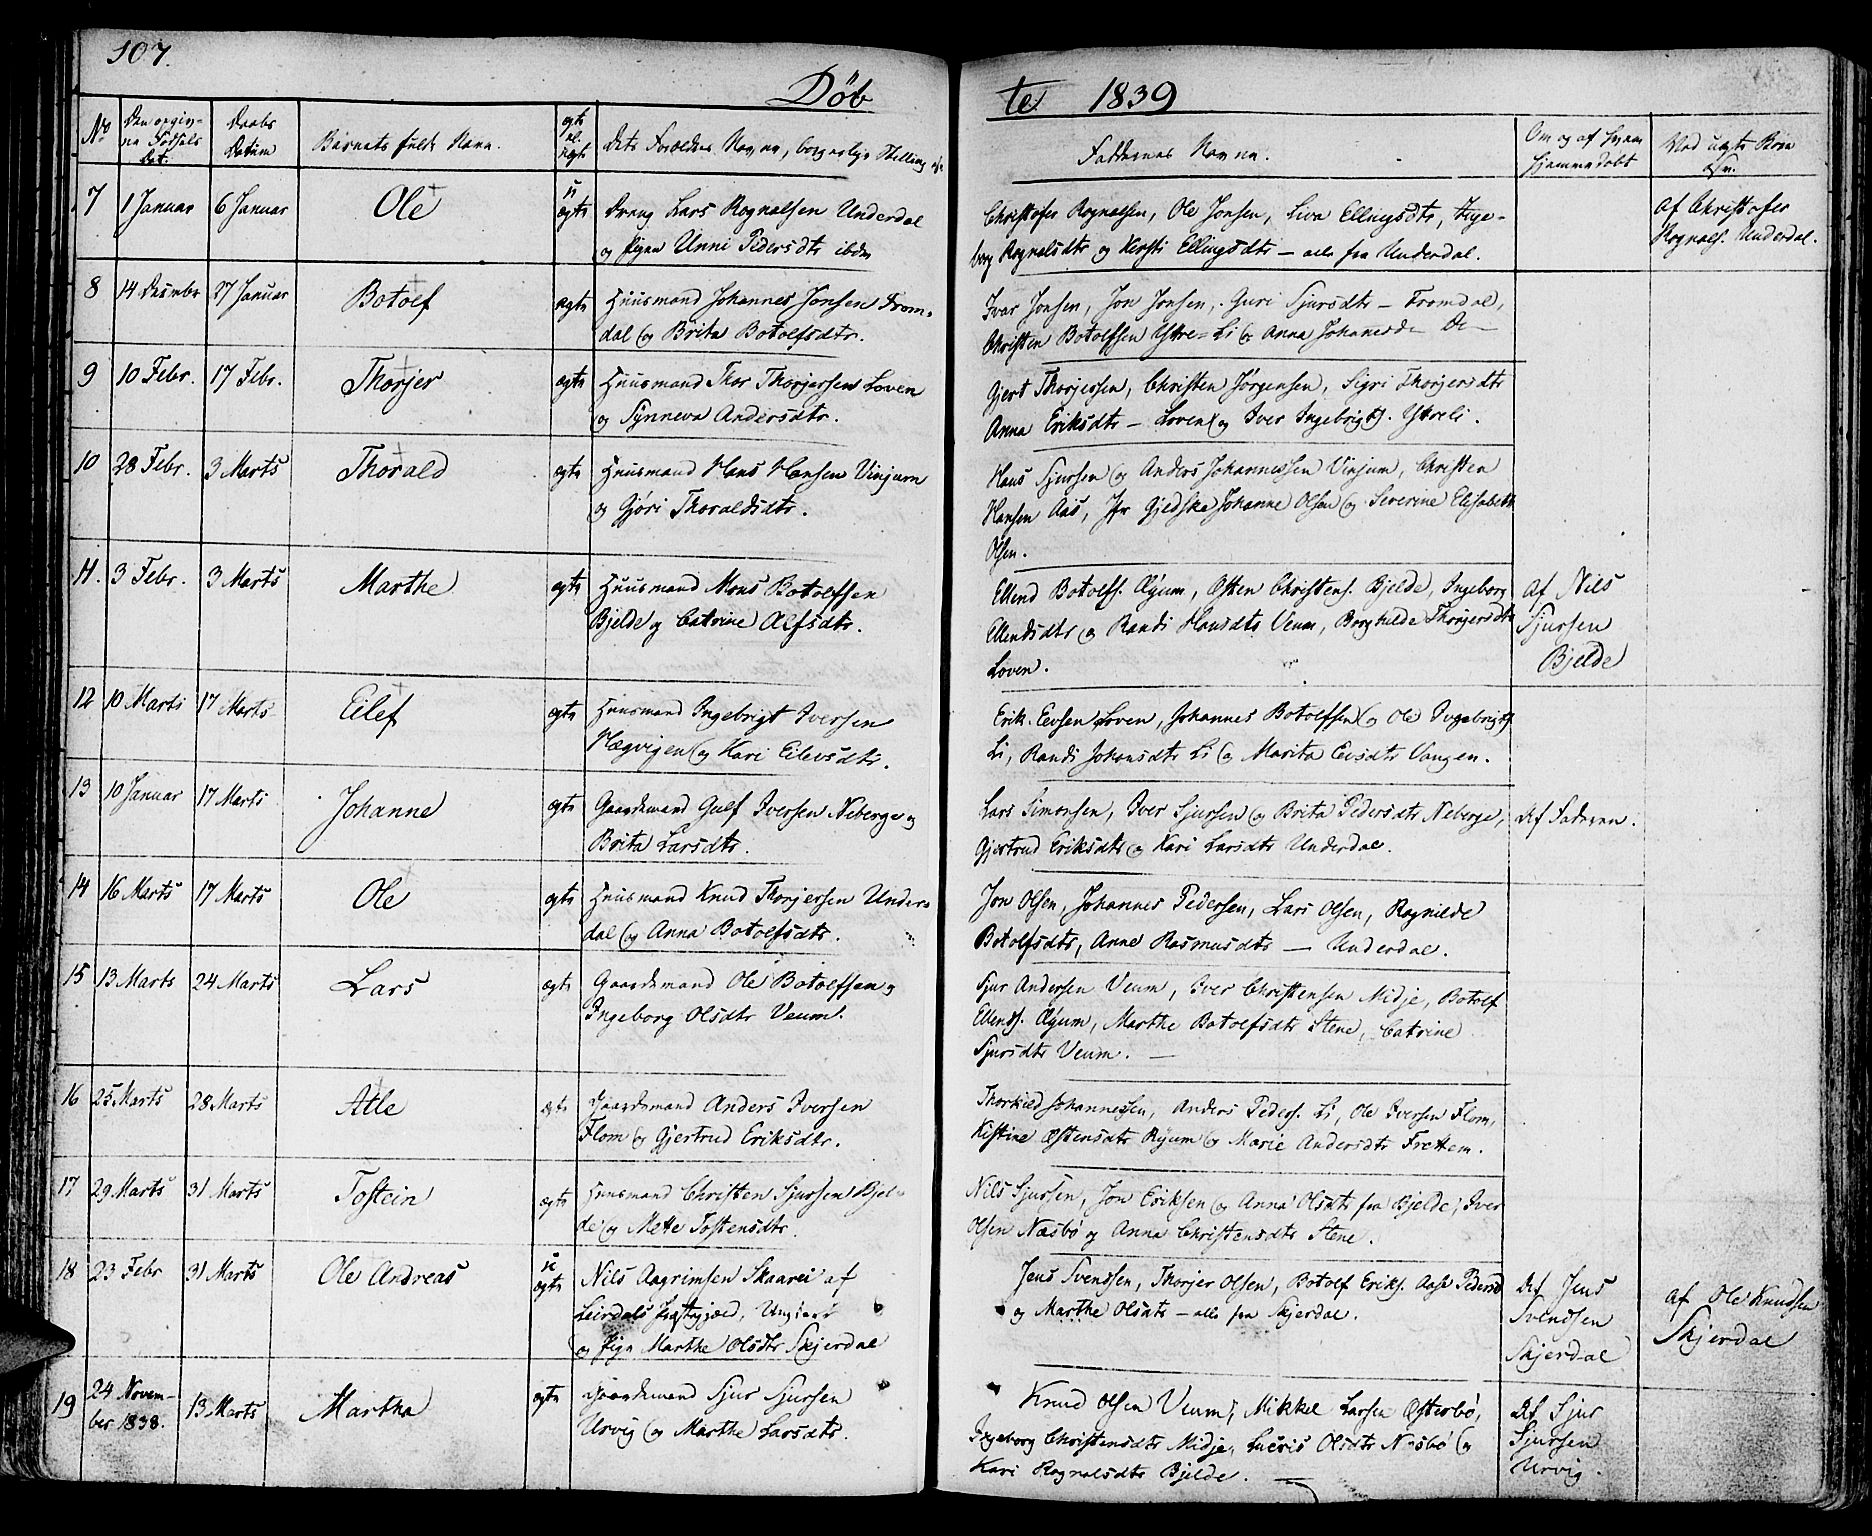 107.
Döbte 1839
No
Den opgiv-
ne Födsels
Dat:
Daabs
Datum
Barnets fulde Navn.
ægte
el.
uægte
Dets Forældres Navne, borgerlige Stilling
Faddernes Navne.
Om og af hvem
hjemmedöbt
Ved uægte Börn
7 1 Januar 6 Januar Ole u ægte Dreng Lars Rognalsen Underdal
og Pigen Unni Pedersdtr ibdm
Christofer Rognalsen, Ole Jonsen, Siva Ellingsdtr, Inge-
borg Rognalsdtr og Kirsti Ellingsdtr – alle fra Underdal.
af Christofer
Rognals. Underdal.
8 14 December 27 Januar Botolf ægte Huusmand Johannes Jonsen From-
dal og Brita Botolfsdtr.
Ivar Jonsen, Jon Jonsen, Guri Sjursdtr – Fromdal,
Christen Botolfsen Ytre-Li og Anna Johannesd– Do –
9 10 Febr. 17 Febr. Thorjer ægte Huusmand Thor Thorjersen Loven
og Synneva Andersdtr.
Gjert Thorjersen, Christen Jörgensen, Sigri Thorjersdtr
Anna Eriksdtr – Loven og Iver Ingebrigts. Ytreli.
10 28 Febr. 3 Marts Thorald ægte Huusmand Hans Hansen Vinjum
og Gjöri Thoraldsdtr.
Hans Sjursen og Anders Johannessen Vinjum, Christen
Hansen Aas, Jfr Gjedske Johanne Olsen og Severine Elisabeth
Olsen.
11. 3 Febr. 3 Marts Marthe ægte Huusmand Mons Botolfsen
Bjelde og Catrine Olfsdtr.
Ellend Botolfs. Øyum, Østen Christens. Bjelde, Ingeborg
Ellendsdtr og Randi Hansdtr Veum, Borghilde Thorjersdtr
Loven.
Af Nils
Sjursen
Bjelde
12 10 Marts 17 Marts Eilef ægte Huusmand Ingebrigt Iversen
Hægvigen og Kari Eilevsdtr.
Erik Eevsen Loven, Johannes Botolfsen og Ole Ingebrigts
Li, Randi Johansdtr Li og Marita Eevsdtr Vangen.
13 10 Januar 17 Marts Johanne ægte Gaardemand Gulf Iversen Neberge og
Brita Larsdtr.
Lars Simonsen, Iver Sjursen og Brita Pedersdtr Neberge,
Gjertrud Eriksdtr og Kari Larsdtr Underdal.
Af Faderen.
14 16 Marts 17 Marts Ole ægte Huusmand Knud Thorjersen Under-
dal og Anna Botolfsdtr.
Jon Olsen, Johannes Pedersen, Lars Olsen, Ragnilde
Botolfsdtr, Anne Rasmusdtr – Underdal.
15 13 Marts 24 Marts Lars ægte Gaardemand Ole Botolfsen og
Ingeborg Olsdtr Veum.
Sjur Andersen Veum, Iver Christensen Midje, Botolf
Ellends. Øyum, Marthe Botolfsdtr Stene, Catrine
Sjursdtr Veum. –
16 25 Marts 28 Marts Atle ægte Gaardemand Anders Iversen
Flom og Gjertrud Eriksdtr.
Thorkild Johannessen, Anders Peders. Li, Ole Iversen Flom,
Kistine Østensdtr Ryum og Marie Andersdtr Frettem.
17 29 Marts 31 Marts Tostein ægte Huusmand Christen Sjursen Bjel-
de og Mette Tostensdtr.
Nils Sjursen, Jon Eriksen og Anna Olsdtr fra Bjelde, Iver
Olsen Næsbö og Anna Christensdtr Stene.
18 23 Febr 31 Marts Ole Andreas u ægte Nils Aagrimsen Skaarei af
Leirdals Præstegjæld, Ungkarl
og Pige Marthe Olsdtr Skjerdal
Jens Svendsen, Thorjer Olsen, Botolf Eriks. Aase Pedersd
og Marthe Olsdtr – alle fra Skjerdal.
Af Jens
Svendsen
Skjerdal
af Ole Knudsen
Skjerdal
19 24 Novem-
ber 1838. 13 Marts Martha ægte Gaardemand Sjur Sjursen
Urvig og Marthe Larsdtr.
Knud Olsen Veum, Mikkel Larsen Østerbö,
Ingeborg Christensdtr Midje, Lucris Olsdtr Næsbö og
Kari Rognalsdtr Bjelde. –
Af Sjur
Sjursen
Urvig.